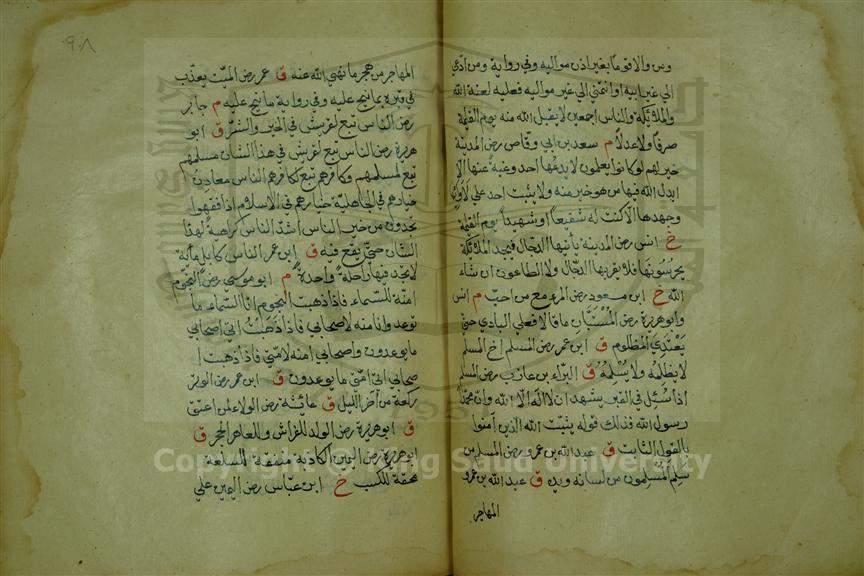 ومن والا قوما بغير اذن مواليه وفي رواية ومن ادعي
الي غير ابيه او انتمي الي غير مواليه فعليه لعنة الله
والملائكة والناس اجمعين لا يقبل الله منه يوم القيمة
صرفا ولا عدلا م سعد بن ابي وقاص رض المدينة
خير لهم لو كانوا يعلمون لا يدعها احد رغبة عنها الا
ابدل الله فيها من هو خير منه ولا يثبت احد علي لاوائها
وجهدها الا كنت له شفيعا او شهيدا يوم القيمة
خ انس رض المدينة يأتيها الدجال فيجد الملائكة
يحرسونها فلا يقربها الدجال ولا الطاعون ان شاء
الله خ ابن مسعود رض المرء مع من احب م انس
وابو هريرة رض المستبان ما قالا فعلي البادي حتى
يعتدي المظلوم ق ابن عمر رض المسلم اخ المسلم
لا يظلمه ولا يسلمه ق البراء بن عازب رض المسلم
اذا سئل في القبر يشهد ان لا اله الا الله وان محمدا
رسول الله فذلك قوله يثبت الله الذين آمنوا
بالقول الثابت ق عبد الله بن عمرو رض المسلم من
سلم المسلمون من لسانه ويده ق عبد الله بن عمرو
المهاجر
٩٠٨
المهاجر من هجر ما نهي الله عنه ق عمر رض الميت يعذب
في قبره بما نيح عليه وفي رواية ما نيح عليه م جابر
رض الناس تبع لقريش في الخير والشر ق ابو
هريرة رض الناس تبع لقريش في هذا الشان مسلمهم
تبع لمسلمهم وكافرهم تبع لكافرهم الناس معادن
خيارهم في الجاهلية خيارهم في الاسلام اذا فقهوا
تجدون من خير الناس اشد الناس كراهية لهذا
الشان حتى يقع فيه ق ابن عمر الناس كابل مائة
لا تجد فيها راحلة واحدة م ابو موسى رض النجوم
امنة للسماء فاذا ذهبت النجوم اتا السماء ما
توعد وانا منه لاصحابي فاذا ذهبت اتي اصحابي
ما يوعدون واصحابي امنه لامتي فاذا ذهبت ا
صحابي اتي امتي ما يوعدون ق ابن عمر رض الوتر
ركعة من آخر الليل ق عائشة رض الولاء لمن اعتق
ق ابو هريرة رض الولد للفراش وللعاهر الحجر ق
ابو هريرة رض اليمين الكاذبة منفقة للسلعة
محقة للكسب خ ابن عباس رض اليمين علي
Copyright © King Saud University